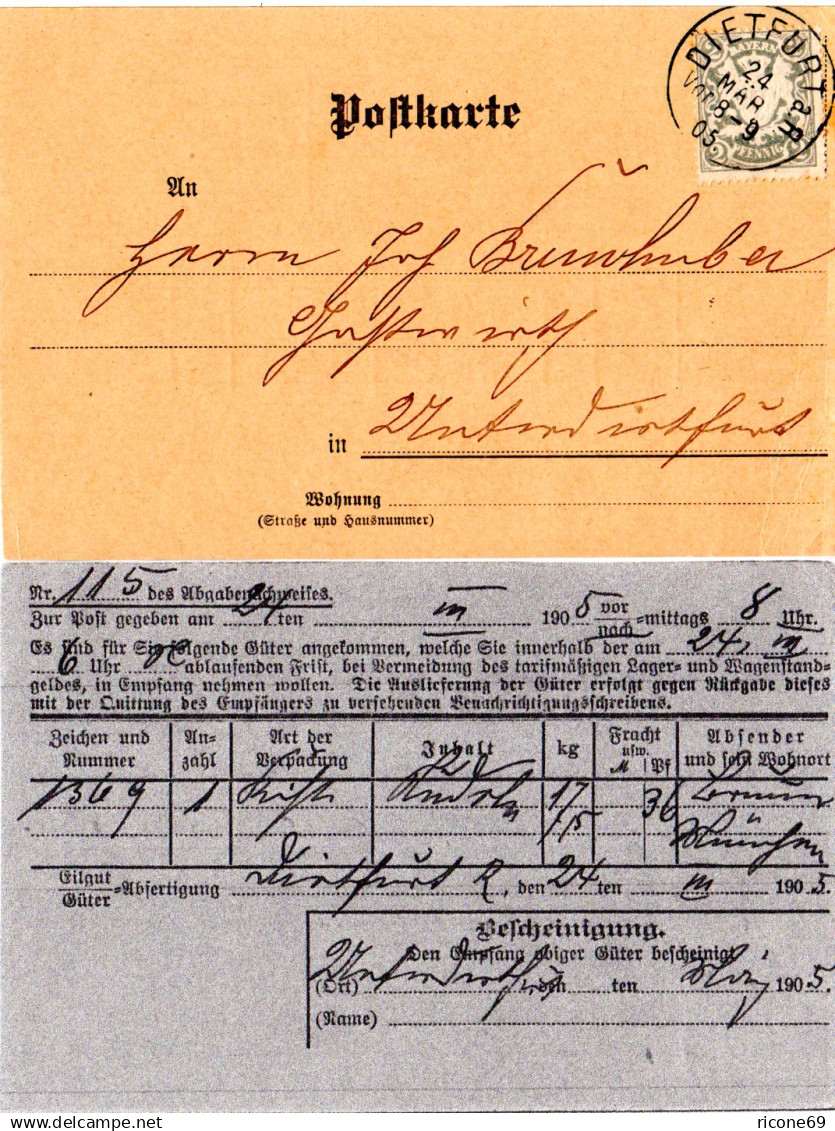 Postkarte
DIETFURT a.R.
24
MÄR
Vor. 8-9
05.
BAYERN
PFENNIG
An
Herrn Joh
Gastwirth
in Unterdietfurt
Wohnung
(Straße und Hausnummer)
Nr. 115 des Abgabenachweises.
Zur Post gegeben am 24 ten III 1905 vor/nach =mittags 8 Uhr.
Es sind für Sie folgende Güter angekommen, welche Sie innerhalb der am 24. III
6 Uhr ablaufenden Frist, bei Vermeidung des tarifmäßigen Lager- und Wagenstand-
geldes, in Empfang nehmen wollen. Die Auslieferung der Güter erfolgt gegen Rückgabe dieses
mit der Quittung des Empfängers zu versehenden Benachrichtigungsschreibens.
Zeichen und Nummer An-zahl Art der Verpackung Inhalt kg Fracht usw. M Pf Absender und sein Wohnort
1369 1 Kiste 17 36
15 München
Eilgut/Güter =Abfertigung Dietfurt R, den 24 ten III 1905.
Bescheinigung.
Den Empfang obiger Güter bescheinigt
Unterdietfurt (Ort) den ten 1905.
(Name)
ricone69